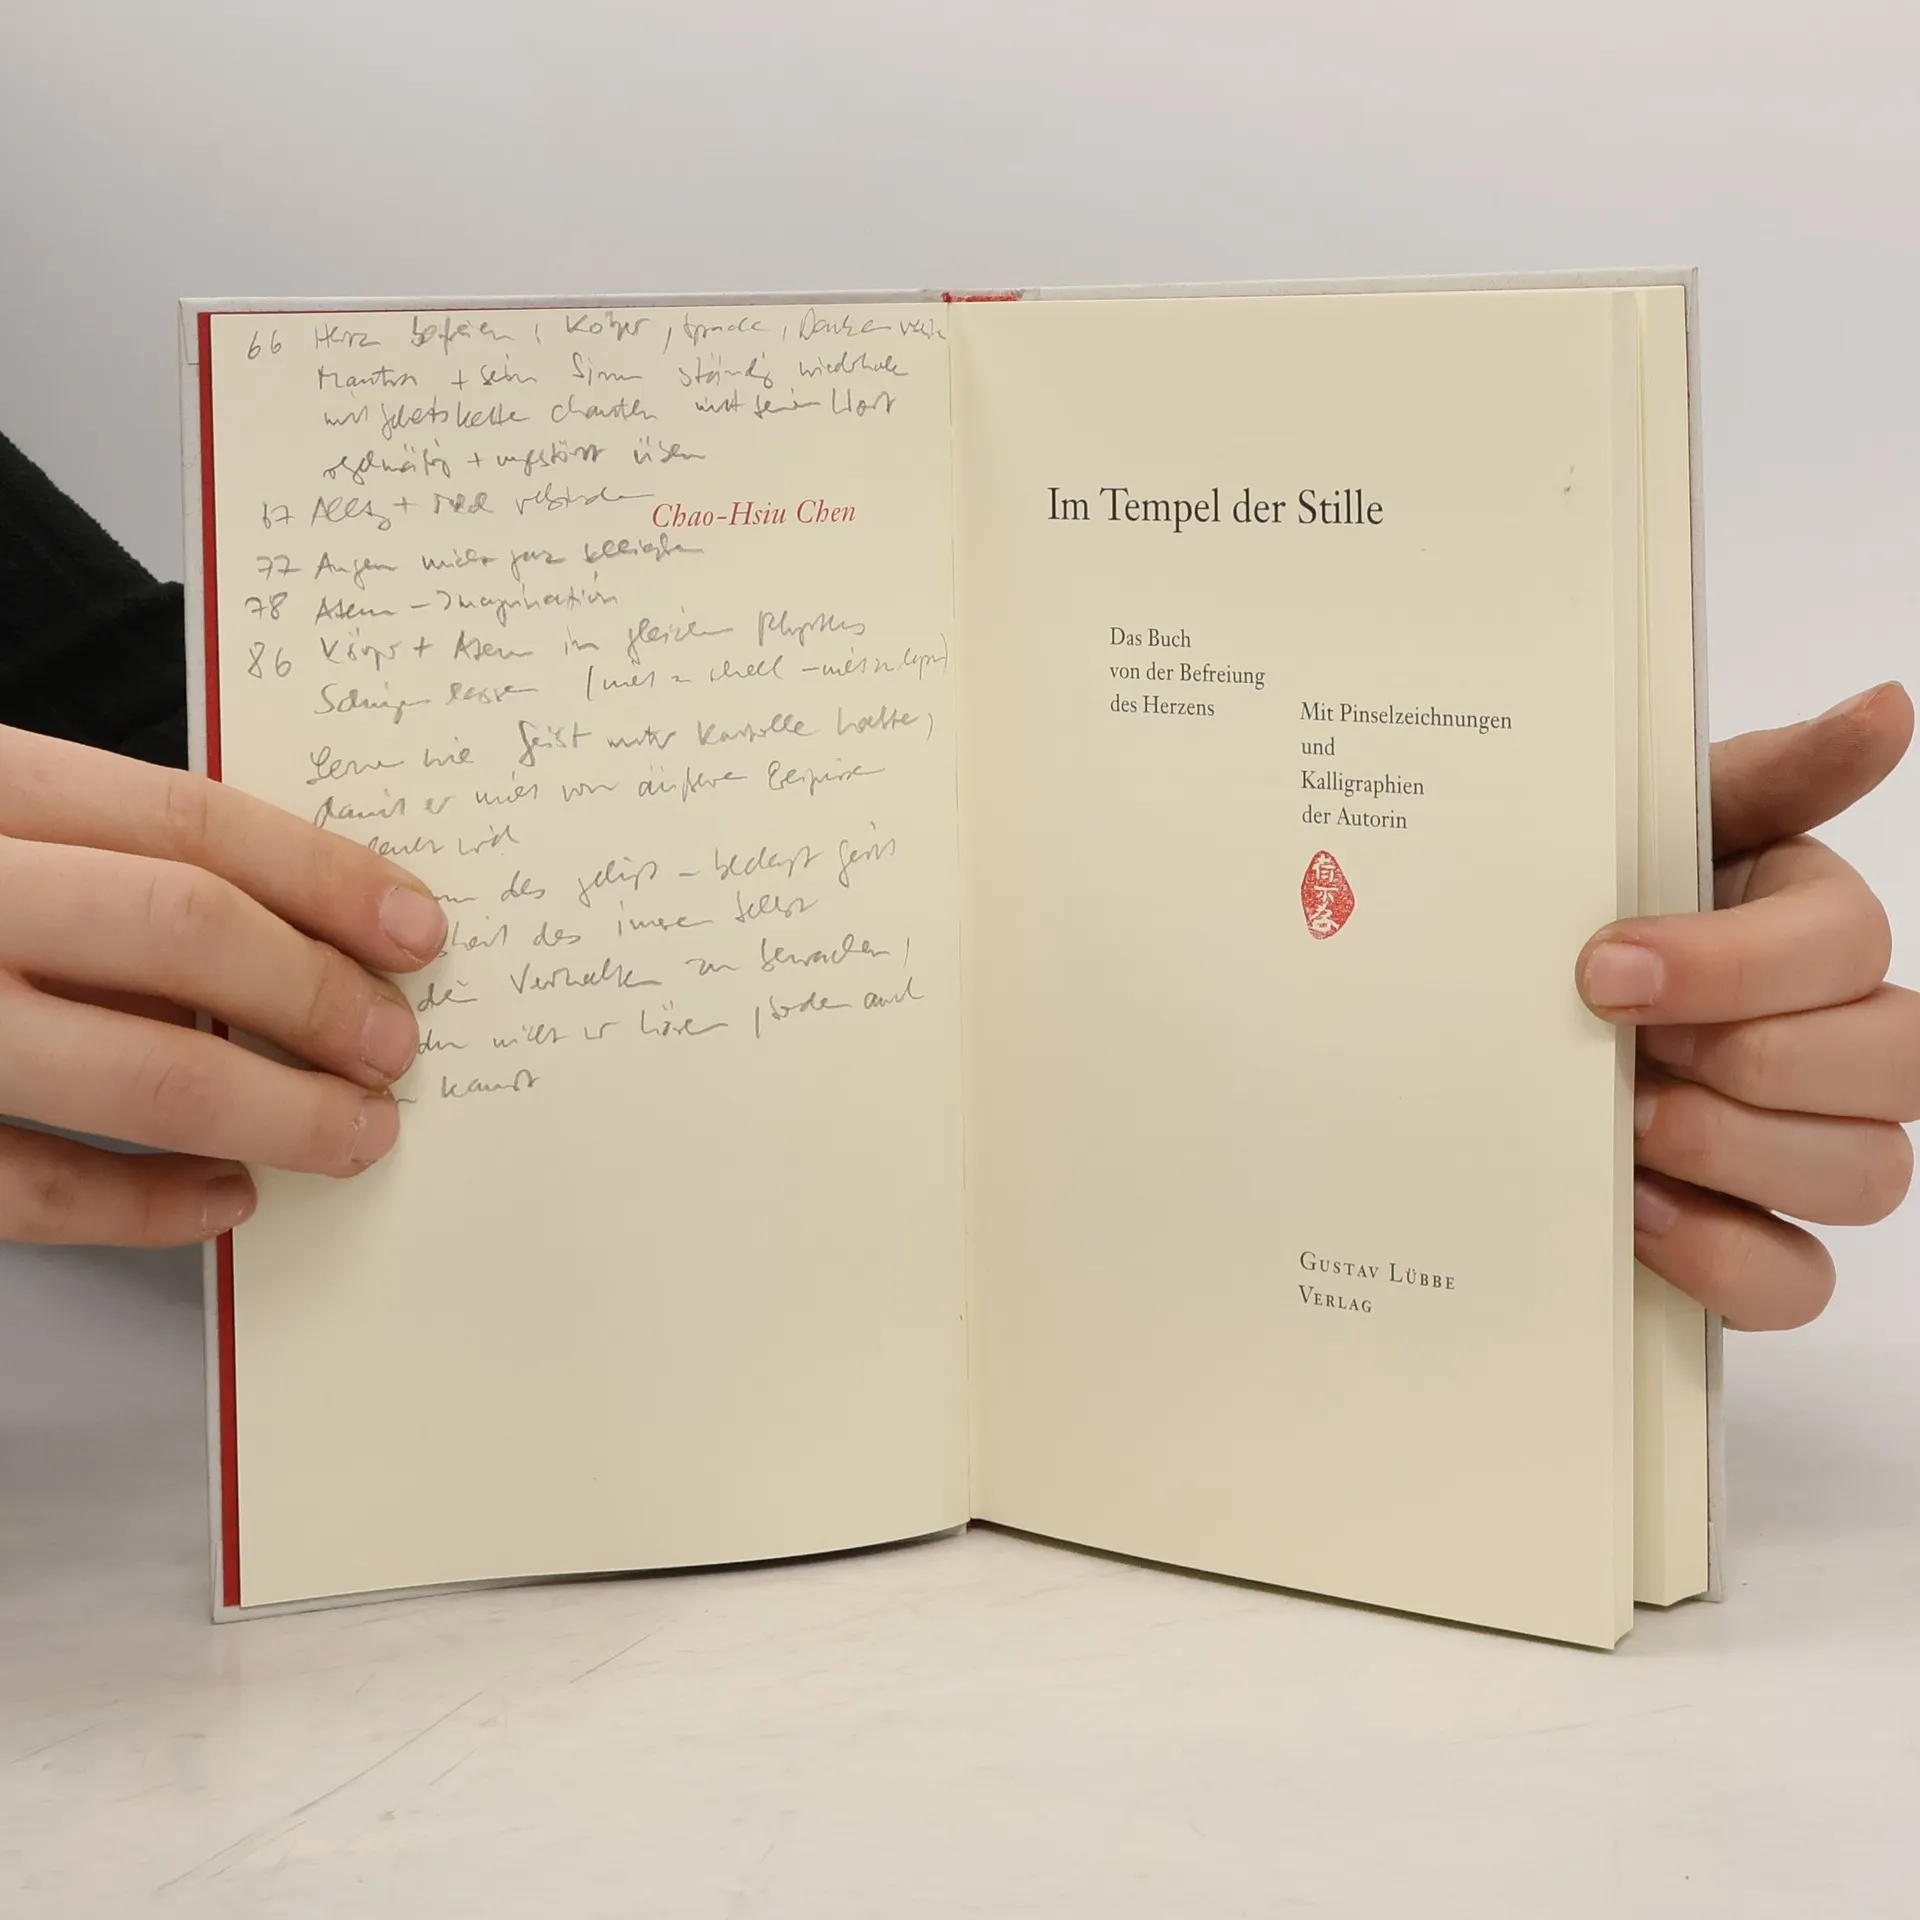 66 Herz befreien, Körper, Sprache, Denken rein
Mantra + sein Sinn ständig wiederholen
mit Gebetskette chanten mit Wort
regelmäßig + ungestört üben
67 Alltag + verbinden
Chao-Hsiu Chen
77 Augen nicht ganz schließen
78 Atem – Imagination
86 Körper + Atem im gleichen Rhythmus
Schwingen lassen (nicht zu schnell – nicht zu langsam)
Lerne wie Geist unter Kontrolle halten,
damit er nicht von äußeren
wird
des – bedarf
des inneren Selbst
dein Verhalten zu bewachen,
du nicht hören, sondern auch
kannst
Im Tempel der Stille
Das Buch
von der Befreiung
des Herzens
Mit Pinselzeichnungen
und
Kalligraphien
der Autorin
GUSTAV LÜBBE
VERLAG